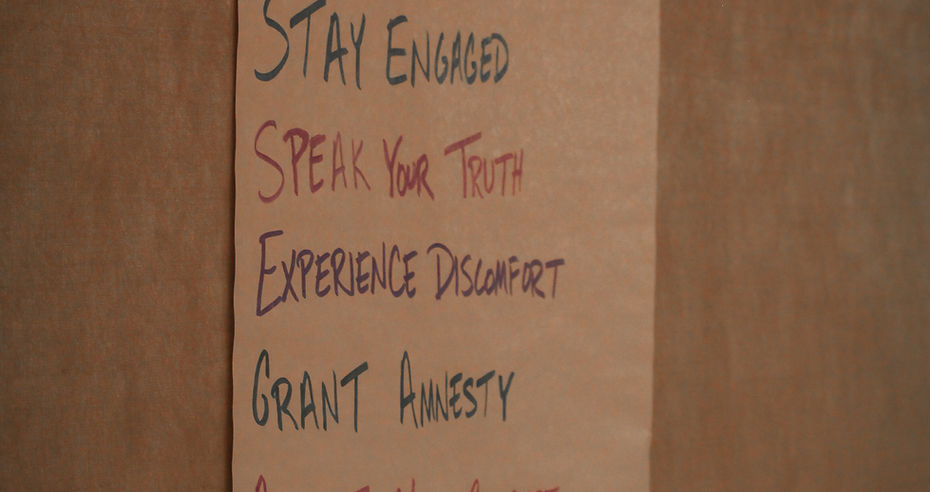 STAY ENGAGED
SPEAK YOUR TRUTH
EXPERIENCE DISCOMFORT
GRANT AMNESTY